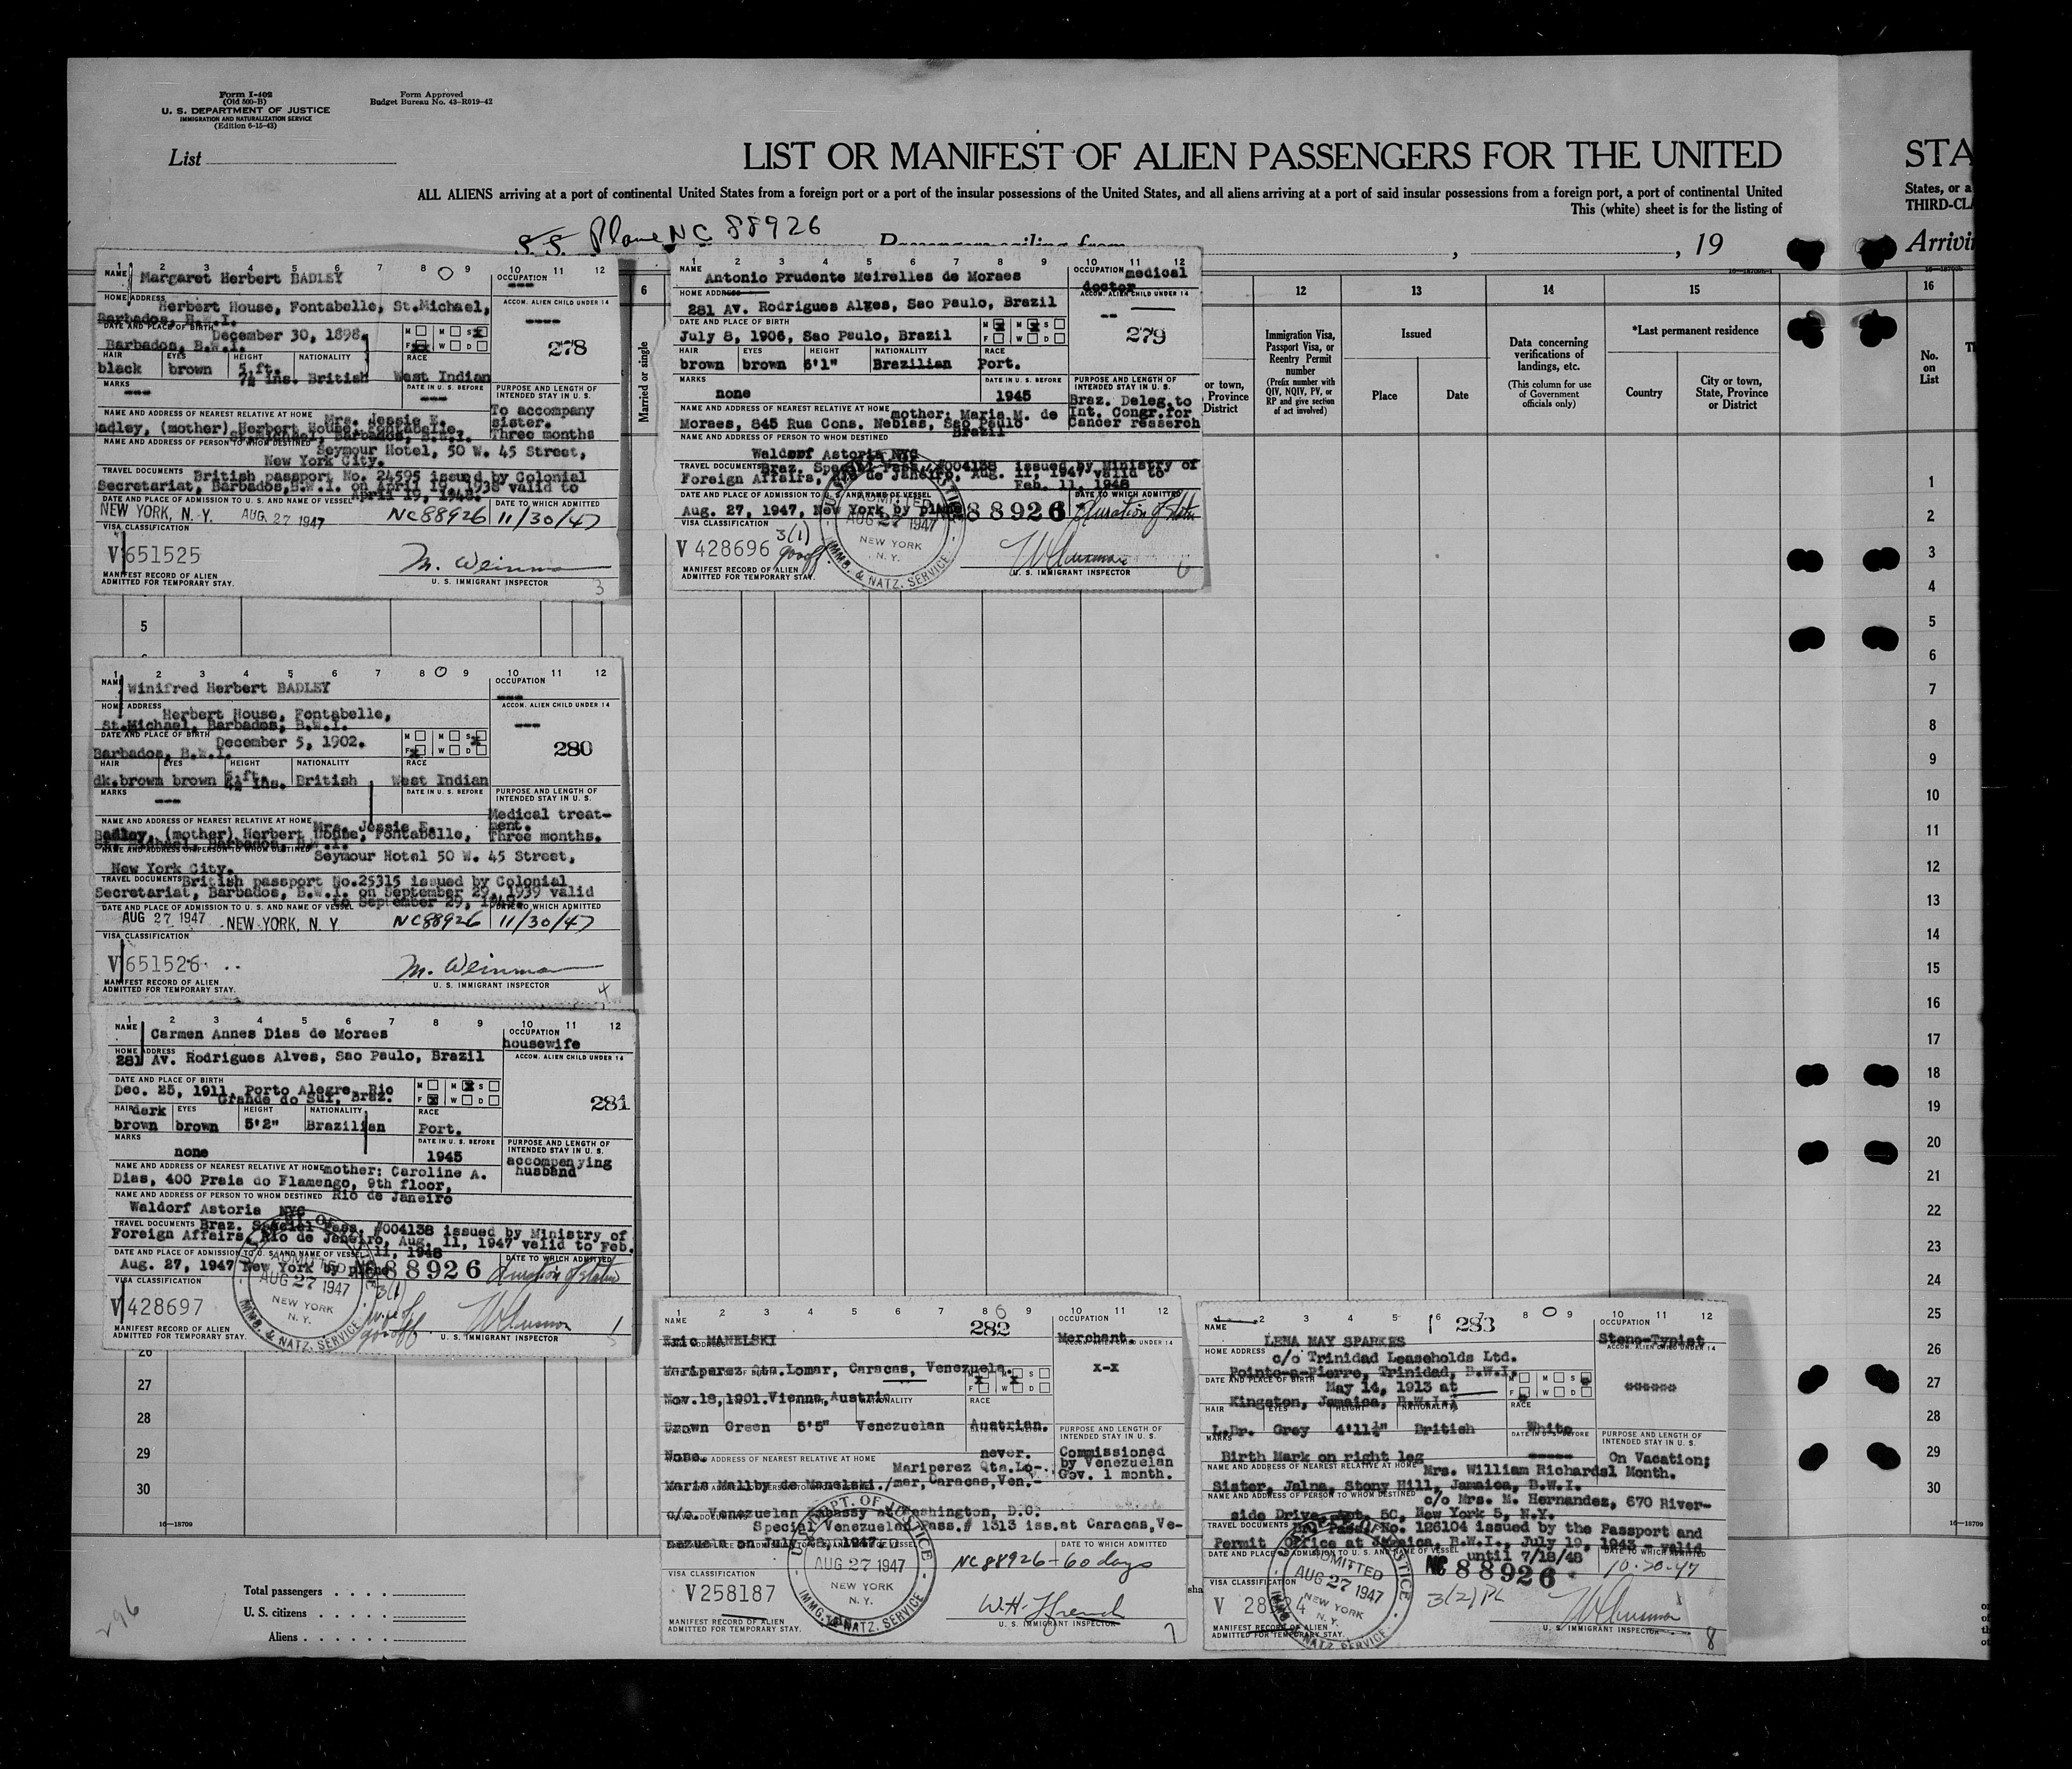 Form I-402
(Old 500-B)
U. S. DEPARTMENT OF JUSTICE
IMMIGRATION AND NATURALIZATION SERVICE
(Edition 6-15-43)
Form Approved
Budget Bureau No. 43-R019-42
List
LIST OR MANIFEST OF ALIEN PASSENGERS FOR THE UNITED
STA
ALL ALIENS arriving at a port of continental United States from a foreign port or a port of the insular possessions of the United States, and all aliens arriving at a port of said insular possessions from a foreign port, a port of continental United
States, or a
This (white) sheet is for the listing of
THIRD-CLA
S.S. Plane NC 88926
Passengers sailing from , , 19
Arrivi
1 2 3 4 5 6 7 8 9 10 11 12
NAME Margaret Herbert BADLEY
OCCUPATION ---
HOME ADDRESS Herbert House, Fontabelle, St.Michael,
Barbados, B.W.I.
ACCOM. ALIEN CHILD UNDER 14 ----
DATE AND PLACE OF BIRTH December 30, 1898.
Barbados, B.W.I.
M M S
F W D
278
HAIR EYES HEIGHT NATIONALITY RACE
black brown 5 ft. 7½ ins. British West Indian
MARKS ---
DATE IN U. S. BEFORE ---
PURPOSE AND LENGTH OF INTENDED STAY IN U. S.
To accompany
sister.
Three months
NAME AND ADDRESS OF NEAREST RELATIVE AT HOME Mrs. Jessie E.
Badley, (mother) Herbert House, Fontabelle,
St.Michael, Barbados, B.W.I.
NAME AND ADDRESS OF PERSON TO WHOM DESTINED
Seymour Hotel, 50 W. 45 Street,
New York City.
TRAVEL DOCUMENTS British passport No. 24595 issued by Colonial
Secretariat, Barbados,B.W.I. on April 19, 1938 valid to
April 19, 1948.
DATE AND PLACE OF ADMISSION TO U. S. AND NAME OF VESSEL
DATE TO WHICH ADMITTED
NEW YORK, N. Y. AUG. 27 1947 NC88926 11/30/47
VISA CLASSIFICATION
V 651525
M. Weinman
MANIFEST RECORD OF ALIEN
ADMITTED FOR TEMPORARY STAY.
U. S. IMMIGRANT INSPECTOR
3
1 2 3 4 5 6 7 8 9 10 11 12
NAME Antonio Prudente Meirelles de Moraes
OCCUPATION medical
doctor
HOME ADDRESS
281 Av. Rodrigues Alves, Sao Paulo, Brazil
ACCOM. ALIEN CHILD UNDER 14
--
DATE AND PLACE OF BIRTH
July 8, 1906, Sao Paulo, Brazil
M M S
F W D
279
HAIR EYES HEIGHT NATIONALITY RACE
brown brown 6'1" Brazilian Port.
MARKS none
DATE IN U. S. BEFORE 1945
PURPOSE AND LENGTH OF INTENDED STAY IN U. S.
Braz. Deleg.to
Int. Congr.for
Cancer research
NAME AND ADDRESS OF NEAREST RELATIVE AT HOME mother: Maria M. de
Moraes, 845 Rua Cons. Nebias, Sao Paulo
Brazil
NAME AND ADDRESS OF PERSON TO WHOM DESTINED
Waldorf Astoria NYC
TRAVEL DOCUMENTS Braz. Special Pass. #004138 issued by Ministry of
Foreign Affairs, Rio de Janeiro, Aug. 11, 1947 valid to
Feb. 11, 1948
DATE AND PLACE OF ADMISSION TO U. S. AND NAME OF VESSEL
DATE TO WHICH ADMITTED
Aug. 27, 1947, New York by plane 88926 duration of status
VISA CLASSIFICATION
V 428696 3(1)
ADMITTED AUG 27 1947 NEW YORK N. Y. IMMG. & NATZ. SERVICE
MANIFEST RECORD OF ALIEN
ADMITTED FOR TEMPORARY STAY.
U. S. IMMIGRANT INSPECTOR
6
Married or single
12
Immigration Visa, Passport Visa, or Reentry Permit number
(Prefix number with QIV, NQIV, PV, or RP and give section of act involved)
13
Issued
Place
Date
14
Data concerning verifications of landings, etc.
(This column for use of Government officials only)
15
*Last permanent residence
Country
City or town, State, Province or District
or town, Province District
16
No. on List
5
1 2 3 4 5 6 7 8 9 10 11 12
NAME Winifred Herbert BADLEY
OCCUPATION ---
HOME ADDRESS Herbert House, Fontabelle,
St.Michael, Barbados, B.W.I.
ACCOM. ALIEN CHILD UNDER 14 ---
DATE AND PLACE OF BIRTH December 5, 1902.
Barbados, B.W.I.
M M S
F W D
280
HAIR EYES HEIGHT NATIONALITY RACE
dk.brown brown 5 ft. 4½ ins. British West Indian
MARKS ---
DATE IN U. S. BEFORE
PURPOSE AND LENGTH OF INTENDED STAY IN U. S.
Medical treat-
ment.
Three months.
NAME AND ADDRESS OF NEAREST RELATIVE AT HOME Mrs. Jessie E.
Badley, (mother) Herbert House, Fontabelle,
St. Michael, Barbados, B.W.I.
NAME AND ADDRESS OF PERSON TO WHOM DESTINED
Seymour Hotel 50 W. 45 Street,
New York City.
TRAVEL DOCUMENTS British passport No.25315 issued by Colonial
Secretariat, Barbados, B.W.I. on September 29, 1939 valid
to September 29, 1949.
DATE AND PLACE OF ADMISSION TO U. S. AND NAME OF VESSEL
DATE TO WHICH ADMITTED
AUG 27 1947 NEW YORK, N. Y. NC88926 11/30/47
VISA CLASSIFICATION
V 651526
M. Weinman
MANIFEST RECORD OF ALIEN
ADMITTED FOR TEMPORARY STAY.
U. S. IMMIGRANT INSPECTOR
4
1 2 3 4 5 6 7 8 9 10 11 12
NAME Carmen Annes Dias de Moraes
OCCUPATION
housewife
HOME ADDRESS
281 Av. Rodrigues Alves, Sao Paulo, Brazil
ACCOM. ALIEN CHILD UNDER 14
DATE AND PLACE OF BIRTH
Dec. 25, 1911, Porto Alegre, Rio
Grande do Sul, Braz.
M M S
F W D
281
HAIR EYES HEIGHT NATIONALITY RACE
dark
brown brown 5'2" Brazilian Port.
MARKS none
DATE IN U. S. BEFORE 1945
PURPOSE AND LENGTH OF INTENDED STAY IN U. S.
accompanying
husband
NAME AND ADDRESS OF NEAREST RELATIVE AT HOME mother: Caroline A.
Dias, 400 Praia do Flamengo, 9th floor,
NAME AND ADDRESS OF PERSON TO WHOM DESTINED Rio de Janeiro
Waldorf Astoria NYC
TRAVEL DOCUMENTS Braz. Special Pass. #004138 issued by Ministry of
Foreign Affairs, Rio de Janeiro, Aug. 11, 1947 valid to Feb.
11, 1948
DATE AND PLACE OF ADMISSION TO U. S. AND NAME OF VESSEL
DATE TO WHICH ADMITTED
Aug. 27, 1947 New York by plane NC 88926 duration of status
VISA CLASSIFICATION
V 428697 3(1)
wife of
ADMITTED AUG 27 1947 NEW YORK N. Y. IMMG. & NATZ. SERVICE
MANIFEST RECORD OF ALIEN
ADMITTED FOR TEMPORARY STAY.
U. S. IMMIGRANT INSPECTOR
5
26
27
28
29
30
16—18709
1 2 3 4 5 6 7 8 9 10 11 12
282
OCCUPATION
Eric MANELSKI
Merchant.
Mariperez Qta.Lomar, Caracas, Venezuela.
x-x
Nov.18,1901.Vienna,Austria
Brown Green 5'5" Venezuelan Austrian.
PURPOSE AND LENGTH OF INTENDED STAY IN U. S.
None. never.
Commissioned
by Venezuelan
Gov. 1 month.
Mariperez Qta.Lo-
Maria Mallby de Manelski./mar,Caracas,Ven.
c/o. Venezuelan Embassy at Washington, D.C.
Special Venezuelan Pass.# 1313 iss.at Caracas,Ve-
nezuela on July 28, 1947.
DATE TO WHICH ADMITTED
NC 88926 - 60 days
VISA CLASSIFICATION
V258187
U. S. DEPT. OF JUSTICE AUG 27 1947 NEW YORK N. Y. IMMG. & NATZ. SERVICE
W.H. French
MANIFEST RECORD OF ALIEN
ADMITTED FOR TEMPORARY STAY.
U. S. IMMIGRANT INSPECTOR
7
1 2 3 4 5 6 7 8 9 10 11 12
283
NAME LENA MAY SPARKES
OCCUPATION
Steno-Typist
HOME ADDRESS c/o Trinidad Leaseholds Ltd.
Pointe-a-Pierre, Trinidad, B.W.I.
ACCOM. ALIEN CHILD UNDER 14
DATE AND PLACE OF BIRTH May 14, 1913 at
Kingston, Jamaica, B.W.I.
M S
F W D
HAIR EYES HEIGHT NATIONALITY RACE
L.Br. Grey 4'11½" British White
MARKS
Birth Mark on right leg
DATE IN U. S. BEFORE -----
PURPOSE AND LENGTH OF INTENDED STAY IN U. S.
On Vacation;
1 Month.
NAME AND ADDRESS OF NEAREST RELATIVE AT HOME Mrs. William Richards
Sister, Jalna, Stony Hill, Jamaica, B.W.I.
NAME AND ADDRESS OF PERSON TO WHOM DESTINED c/o Mrs. M. Hernandez, 670 River-
side Drive, Apt. 5C, New York 5, N.Y.
TRAVEL DOCUMENTS Pass. No. 126104 issued by the Passport and
Permit Office at Jamaica, B.W.I., July 19, 1943 - valid
until 7/18/48
DATE AND PLACE OF ADMISSION TO U. S. AND NAME OF VESSEL
DATE TO WHICH ADMITTED
NC 88926 10-20-47
VISA CLASSIFICATION
V 28 4 3(2) PL
ADMITTED AUG 27 1947 NEW YORK N. Y. NATZ. SERVICE
MANIFEST RECORD OF ALIEN
ADMITTED FOR TEMPORARY STAY.
U. S. IMMIGRANT INSPECTOR
8
1
2
3
4
5
6
7
8
9
10
11
12
13
14
15
16
17
18
19
20
21
22
23
24
25
26
27
28
29
30
16—18709
Total passengers
U. S. citizens
Aliens
296